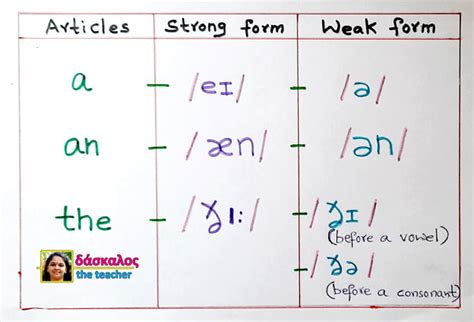 Articles Strong form Weak form
a – /eɪ/ – /ə/
an – /æn/ – /ən/
the – /ðɪ:/ – /ðɪ/
(before a vowel)
– /ðə/
(before a consonant)
δάσκαλος
the teacher